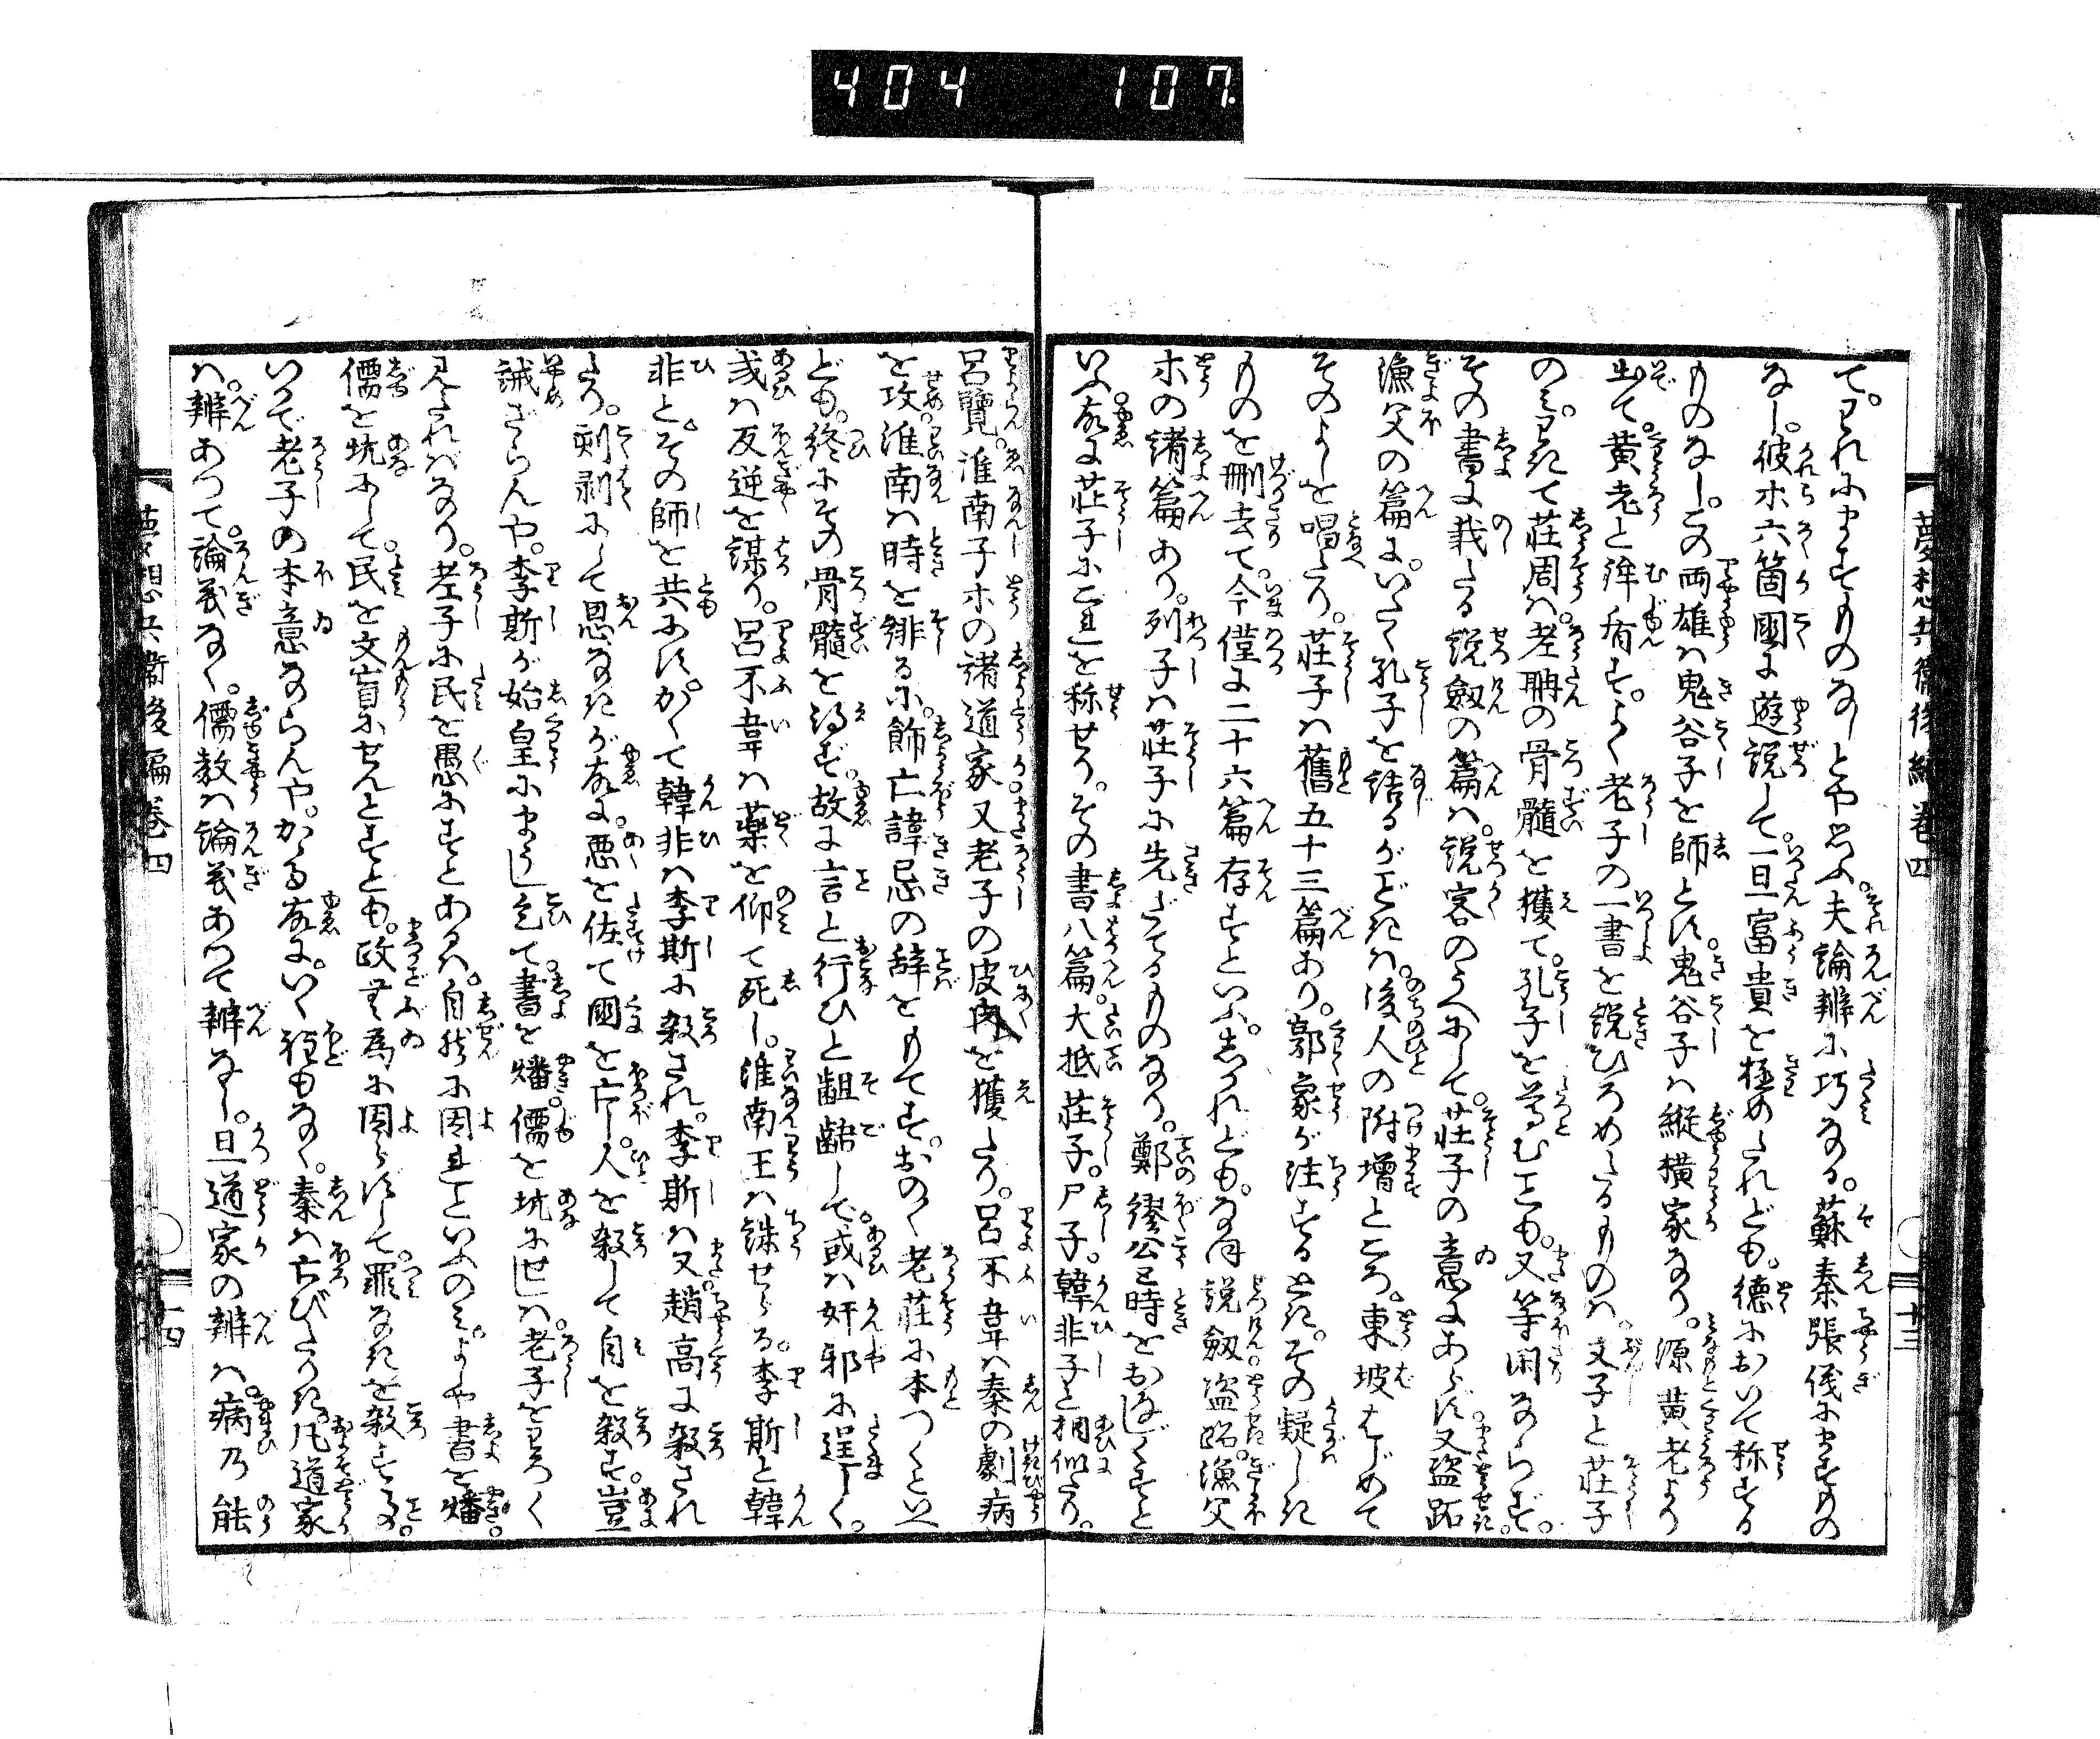 404 107
夢想兵衛後編巻四 十三
て。われにますものなしとや思ふ。夫論辨に巧なる。蘇秦張儀にますもの
なし。彼ホ六箇國に遊説して。一旦富貴を極めたれども。徳において称する
ものなし。この両雄は鬼谷子を師とす。鬼谷子は縦横家なり。源黄老より
出て。黄老と矛盾す。よく老子の一書を説ひろめたるものは。文子と莊子
のみ。わきて莊周は。老聃の骨髓を獲て。孔子を詈むこと も。又等閑ならず。
その書に載たる説劔の篇は。説客のうへにして。莊子の意にあらず。又盗跖
漁父の篇に。いたく孔子を詰るがごときは。後人の附増ところ。東坡はじめて
そのよしを唱たり。莊子は舊五十三篇あり。郭象が注するとき。その疑しき
ものを刪去て。今僅に二十六篇存すといふ。しかれども。なほ説劔。盗跖。漁父
ホの諸篇あり。列子は莊子に先だてるものなり。鄭繆公と時をおなじくすと
いふ。故に莊子にこれを称せり。その書八篇。大抵莊子。尸子。韓非子と相似たり。
呂覽。淮南子ホの諸道家。又老子の皮肉を獲たり。呂不韋は秦の劇病
を攻。淮南は時を誹るに。飾亡諱忌の辞をもてす。おのおの老莊に本つくといへ
ども。終にその骨髓を得ず。故に言と行ひと齟齬して。或は奸邪に逞しく。
或は反逆を謀り。呂不韋は藥を仰て死し。淮南王は誅せらる。李斯と韓
非と。その師を共にす。かくて韓非は李斯に殺され。李斯は又。趙高に殺され
たり。刻剥にして恩なきが故に。惡を佐て國を亡し。人を殺して自を殺す。豈
誡ざらんや。李斯が始皇にまうし乞て。書を燔。儒を坑にせしは。老子をよく
見たればなり。老子に民を愚にすとあるは。自然に因れといふのみ。よしや書を燔。
儒を坑にして。民を文盲にせんとすとも。政無為に因らずして。罪なきを殺す事を。
いかで老子の本意ならんや。かゝる故に。いく程もなく。秦は亡びたりき。凡道家
は。辨あつて。論義なく。儒教は論義あつて辨なし。且道家の辨は。病乃能
夢想兵衛後編巻四 十四